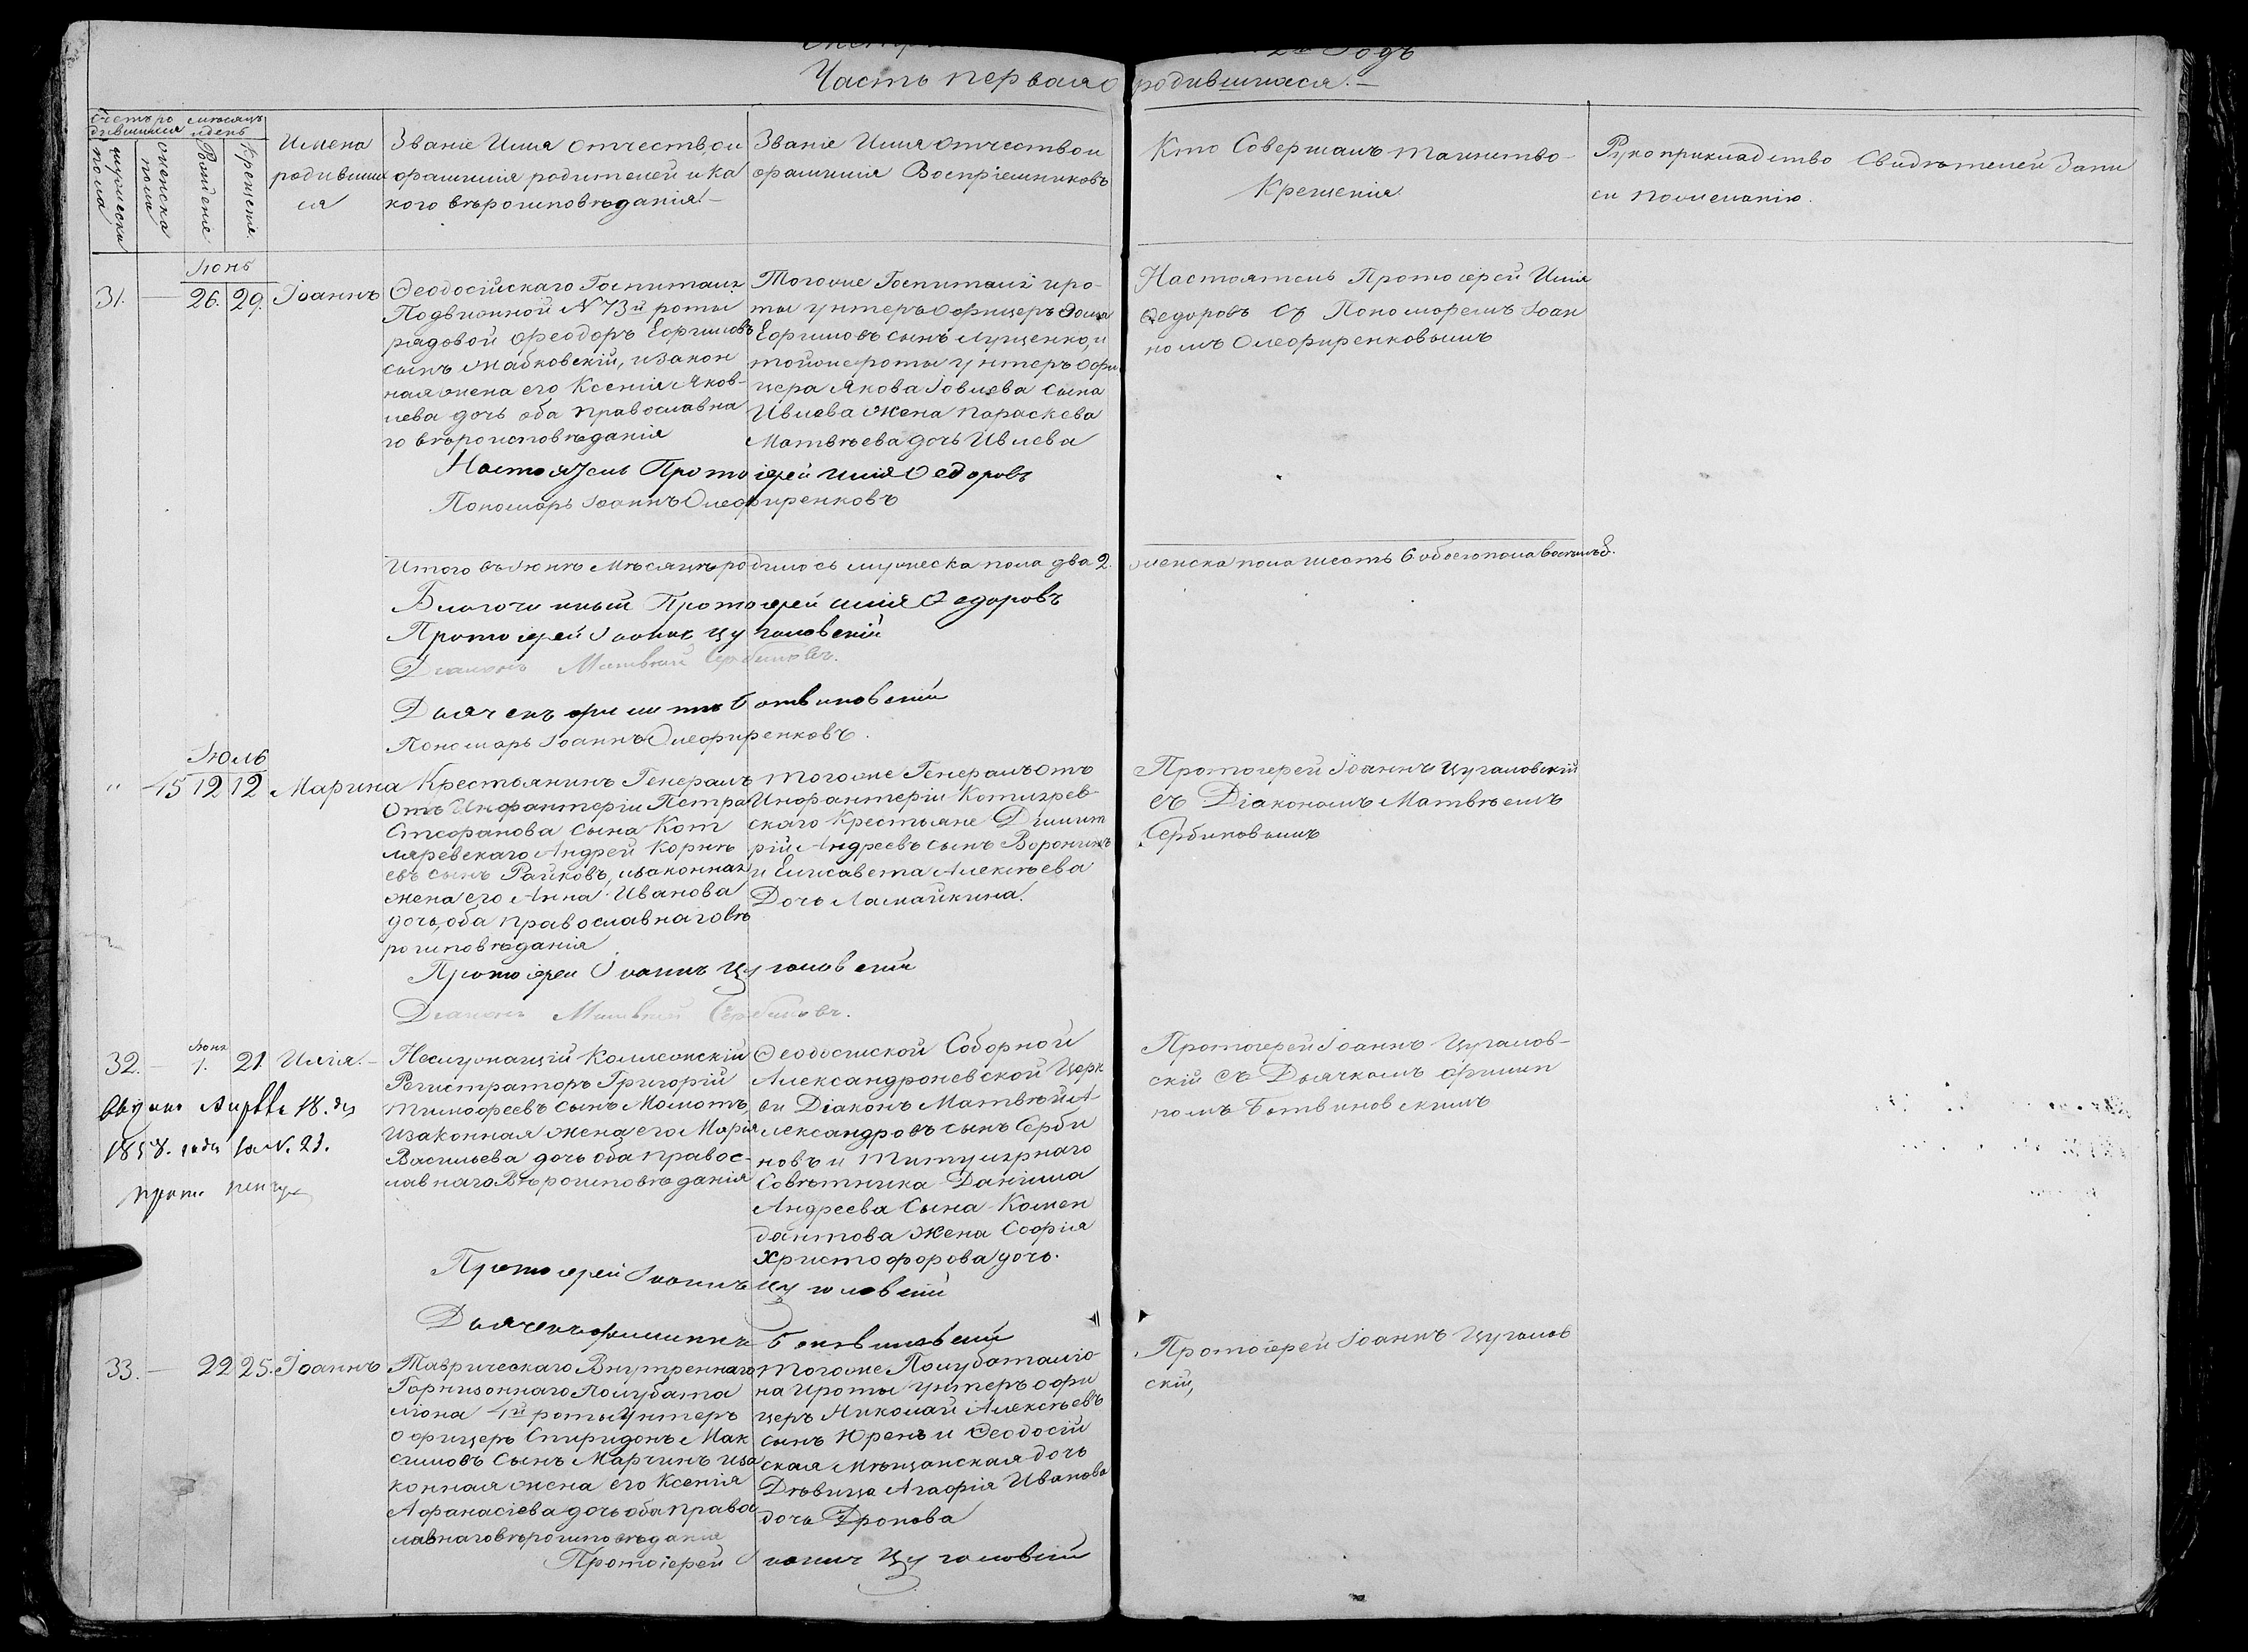 2й Годъ
Часть первая о родившихся. —
Счетъ ро
дившихся
мѣсяцъ
и день
мужеска
пола
женска
пола
Рожденіе
Крещенія.
Имена
родивших
ся
Званіе Имя отчество и
фамилія родителей и ка
кого вѣроисповѣданія. —
Званіе Имя отчество и
фамилія Воспріемниковъ
Кто Совершалъ таинство
Крещенія
Рукоприкладство Свидѣтелей Запи
си по желанію.
Іюнь
31. — 26. 29. Іоаннъ
Ѳеодосійскаго Госпиталя
Подвижной N 73й роты
рядовой Феодоръ Ефимовъ
сынъ Жабковскій, и закон
ная жена его Ксенія Яков-
лева дочь оба православна
го вѣроисповѣданія
Тогоже Госпиталя и ро-
ты унтеръ офицеръ Ѳома
Ефимовъ сынъ Луценко, и
тойже роты унтеръ офи
цера Якова Іовлева сына
Ивлева жена Параскева
Матвѣева дочь Ивлева
Настоятель Протоіерей Илія
Ѳедоровъ съ Пономаремъ Іоан
номъ Олефиренковымъ
Настоятель Протоіерей Илія Ѳедоровъ
Пономарь Іоаннъ Олефиренковъ
Итого въ Іюнѣ Мѣсяцѣ родилось мужеска пола два 2. женска пола шесть 6 обоего пола восемь 8.
Благочинный Протоіерей Илія Ѳедоровъ
Протоіерей Іоаннъ Цугаловскій
Діаконъ Матвѣй Сербиновъ.
Дьячекъ Филиппъ Ботвиновскій
Пономарь Іоаннъ Олефиренковъ.
Іюль
" 15 12 12 Марина
Крестьянинъ Генералъ
Отъ Инфантеріи Петра
Стефанова сына Кот
ляревскаго Андрей Корнѣ
евъ сынъ Райковъ, и законная
жена его Анна Иванова
дочь, оба православнаго вѣ
роисповѣданія
тогоже Генералъ отъ
Инфантеріи Котлярев-
скаго Крестьяне Димит
рій Андреевъ сынъ Воронинъ
и Елисавета Алексѣева
Дочь Ламайкина.
Протоіерей Іоаннъ Цугаловскій
съ Діакономъ Матвѣемъ
Сербиновымъ
Протоіерей Іоаннъ Цугаловскій
Діаконъ Матвѣй Сербиновъ.
Іюня
32. — 1. 21. Илія. —
Неслужащій Коллежскій
Регистраторъ Григорій
Тимофеевъ сынъ Мамотъ,
И законная жена его Марія
Васильева дочь оба правос-
лавнаго Вѣроисповѣданія
Ѳеодосійской Соборной
Александроневской Церк
ви Діаконъ Матвѣй А-
лександровъ сынъ Серби
новъ и Титулярнаго
Совѣтника Даніила
Андреева Сына Комен
дантова Жена Софія
Христофорова дочь.
Протоіерей Іоаннъ Цугалов-
скій съ Дьячкомъ Филип
помъ Ботвиновскимъ
18. 
1858. года за N. 21.
Протоіерей Іоаннъ Цугаловскій
Дьячекъ Филиппъ Ботвиновскій
33. — 22 25. Іоаннъ
Таврическаго Внутренняго
Гарнизоннаго Полубата
ліона 1й роты Унтеръ
офицеръ Спиридонъ Мак
симовъ Сынъ Марчинъ и за
конная жена его Ксенія
Афанасіева дочь оба правос
лавнаго вѣроисповѣданія
Тогоже Полубаталіо
на и роты унтеръ офи
церъ Николай Алексѣевъ
сынъ Юренъ и Ѳеодосій
ская мѣщанская дочь
Дѣвица Агафія Иванова
дочь Дронова
Протоіерей Іоаннъ Цугалов
скій,
Протоіерей Іоаннъ Цугаловскій